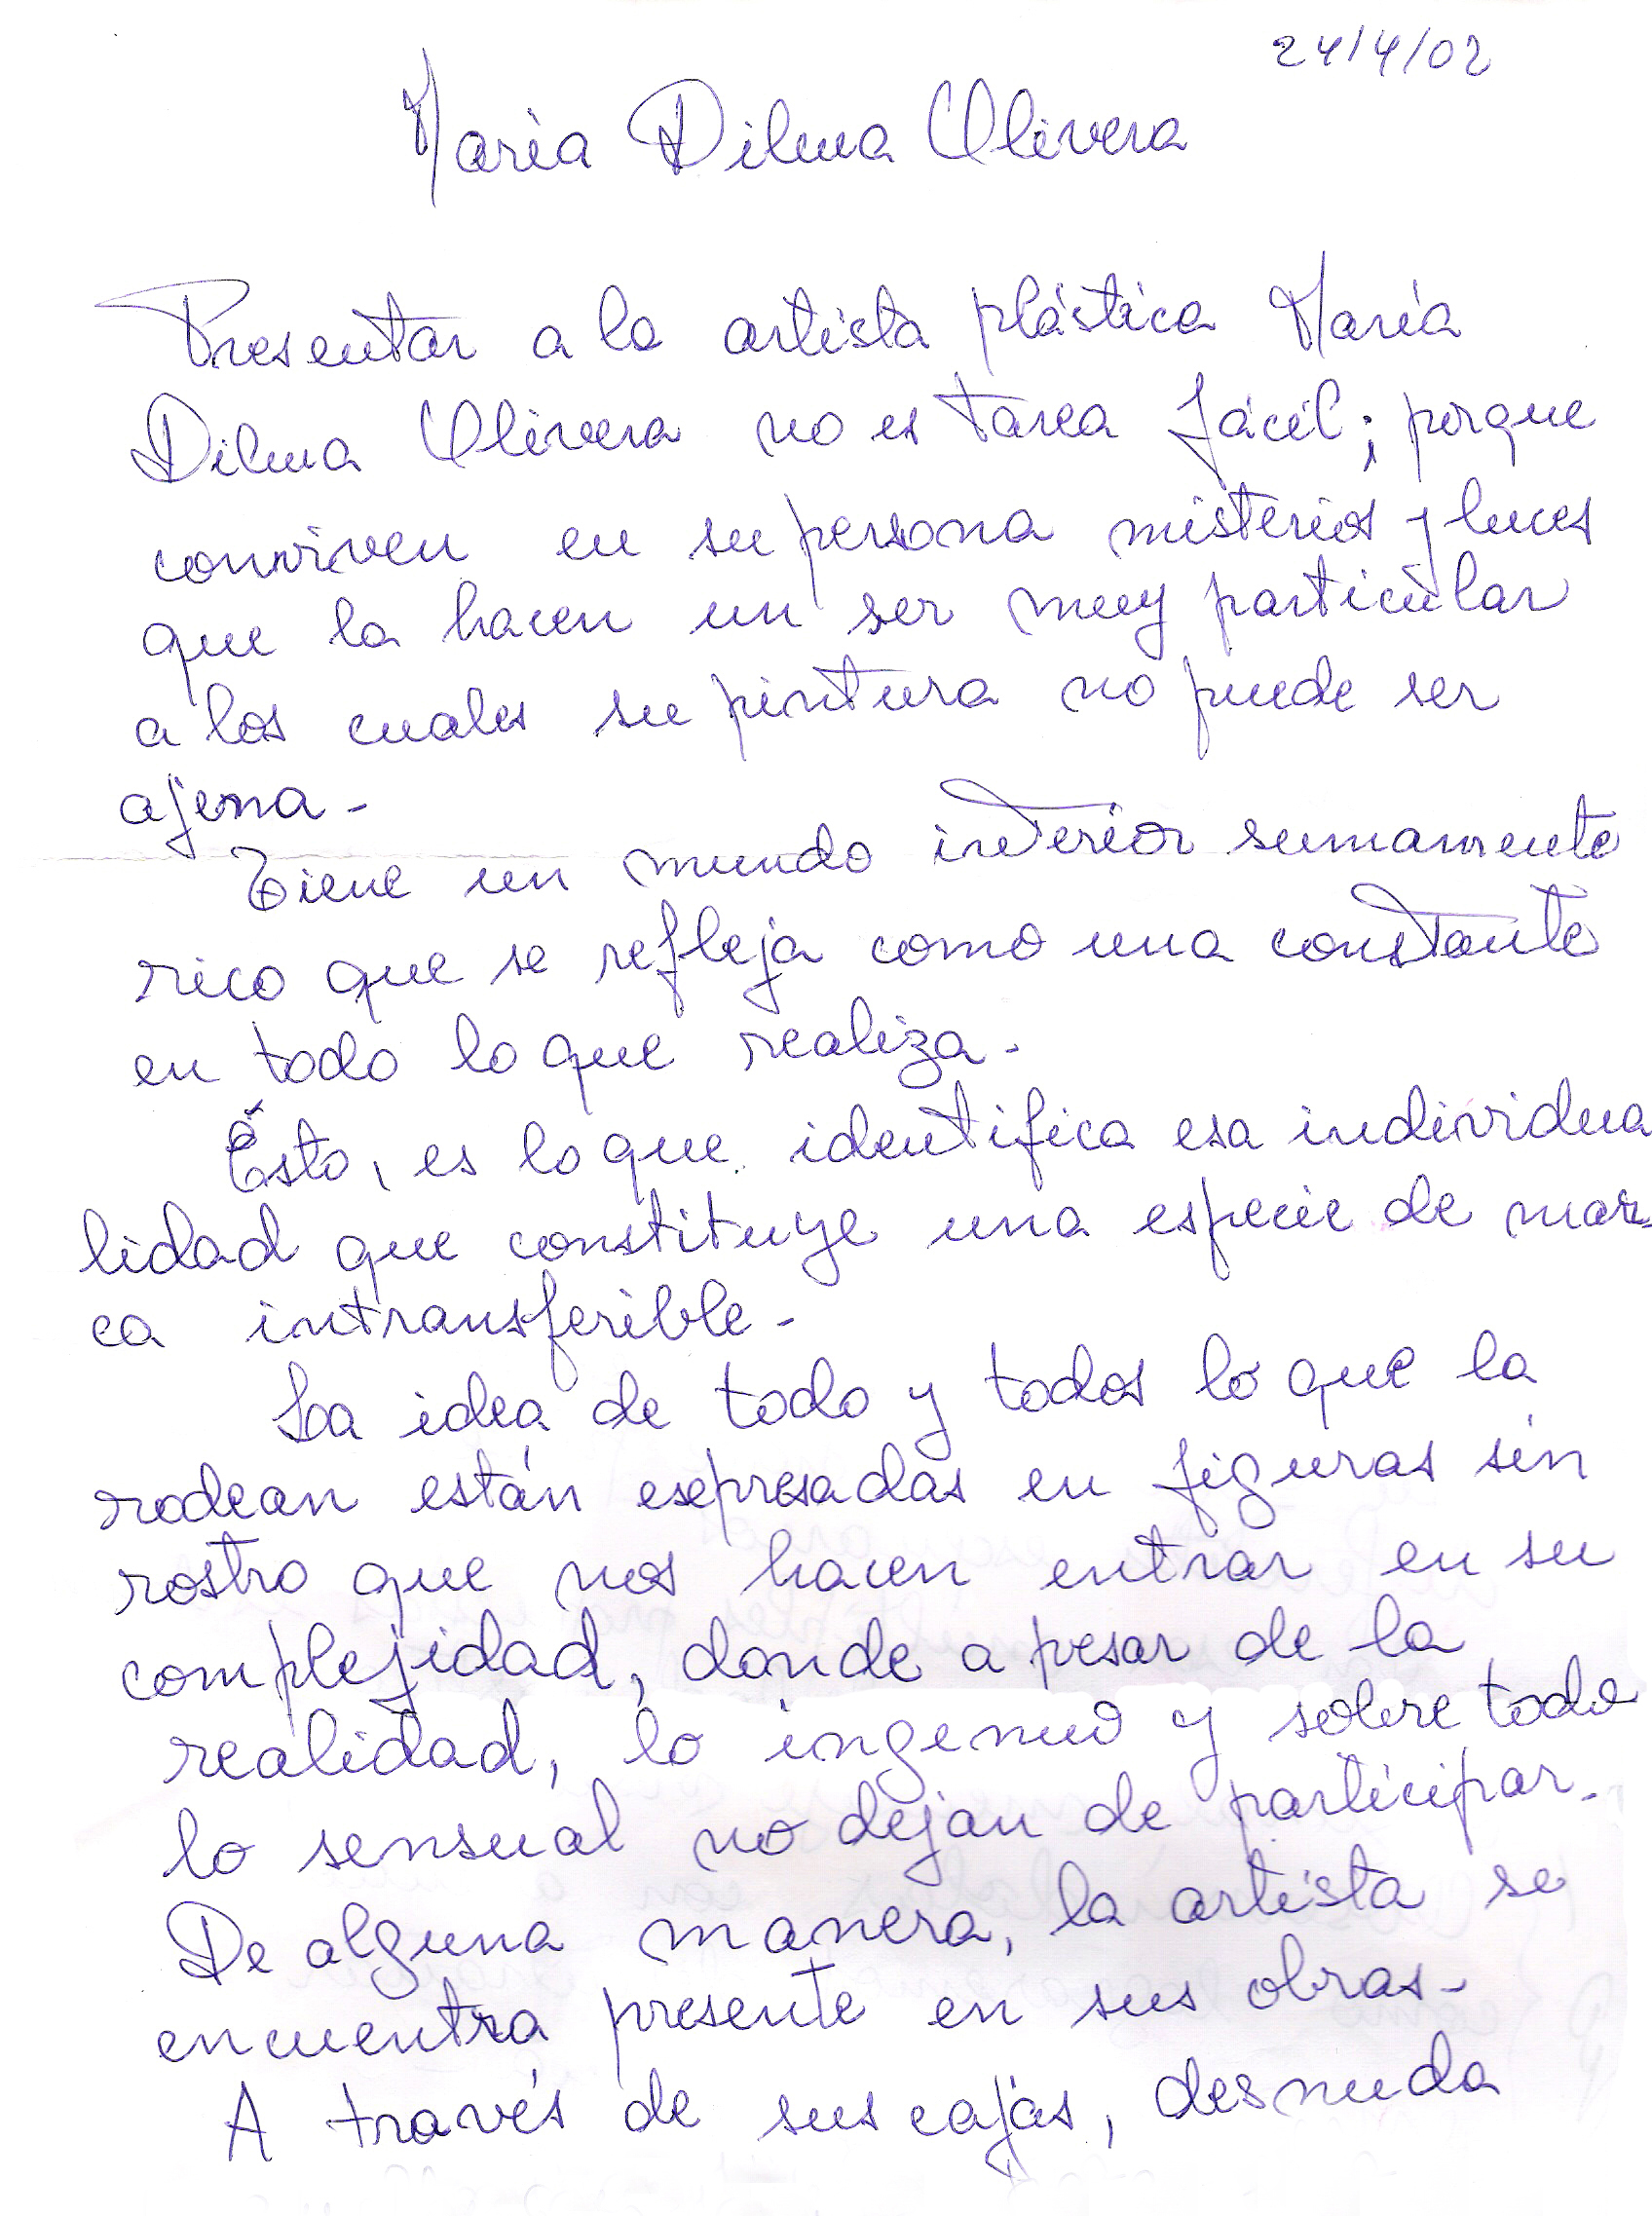 24/4/02
María Dilma Olivera
Presentar a la artista plástica María
Dilma Olivera no es tarea fácil; porque
conviven en su persona misterios y luces
que la hacen un ser muy particular
a los cuales su pintura no puede ser
ajena-
Tiene un mundo interior sumamente
rico que se refleja como una constante
en todo lo que realiza-
Ésto, es lo que identifica esa individua
lidad que constituye una especie de mar-
ca intransferible-
La idea de todo y todos lo que la
rodean están expresadas en figuras sin
rostro que nos hacen entrar en su
complejidad, donde a pesar de la
realidad, lo ingenuo y sobre todo
lo sensual no dejan de participar-
De alguna manera, la artista se
encuentra presente en sus obras-
A través de sus cajas, desnuda